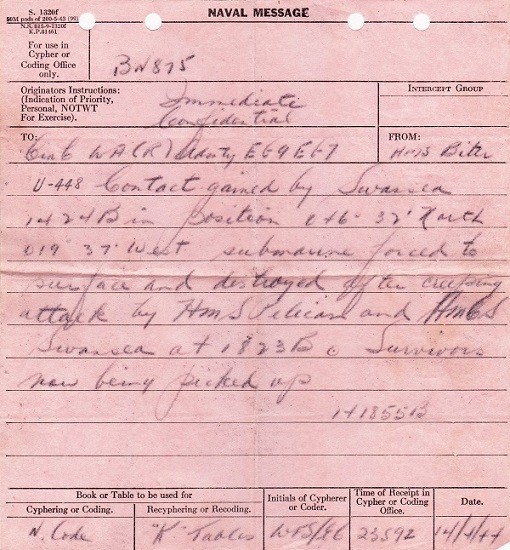 S. 1320f
NAVAL MESSAGE
For use in
Cypher or
Coding Office
only.
BN875
Originators Instructions:
(Indication of Priority,
Personal, NOTWT
For Exercise).
Immediate
Confidential
INTERCEPT GROUP
TO:
FROM:
CinC WA (R) Admty EG9 EG7
HMS Biter
U-448 Contact gained by Swansea
1424B in position 046° 32' North
019° 37' West submarine forced to
surface and destroyed after creeping
attack by HMS Pelican and HMCS
Swansea at 1823B. Survivors
now being picked up
141855B
Book or Table to be used for
Cyphering or Coding.
Recyphering or Recoding.
Initials of Cypherer
or Coder.
Time of Receipt in
Cypher or Coding
Office.
Date.
N. Code
"K" Tables
2359Z
14/4/44